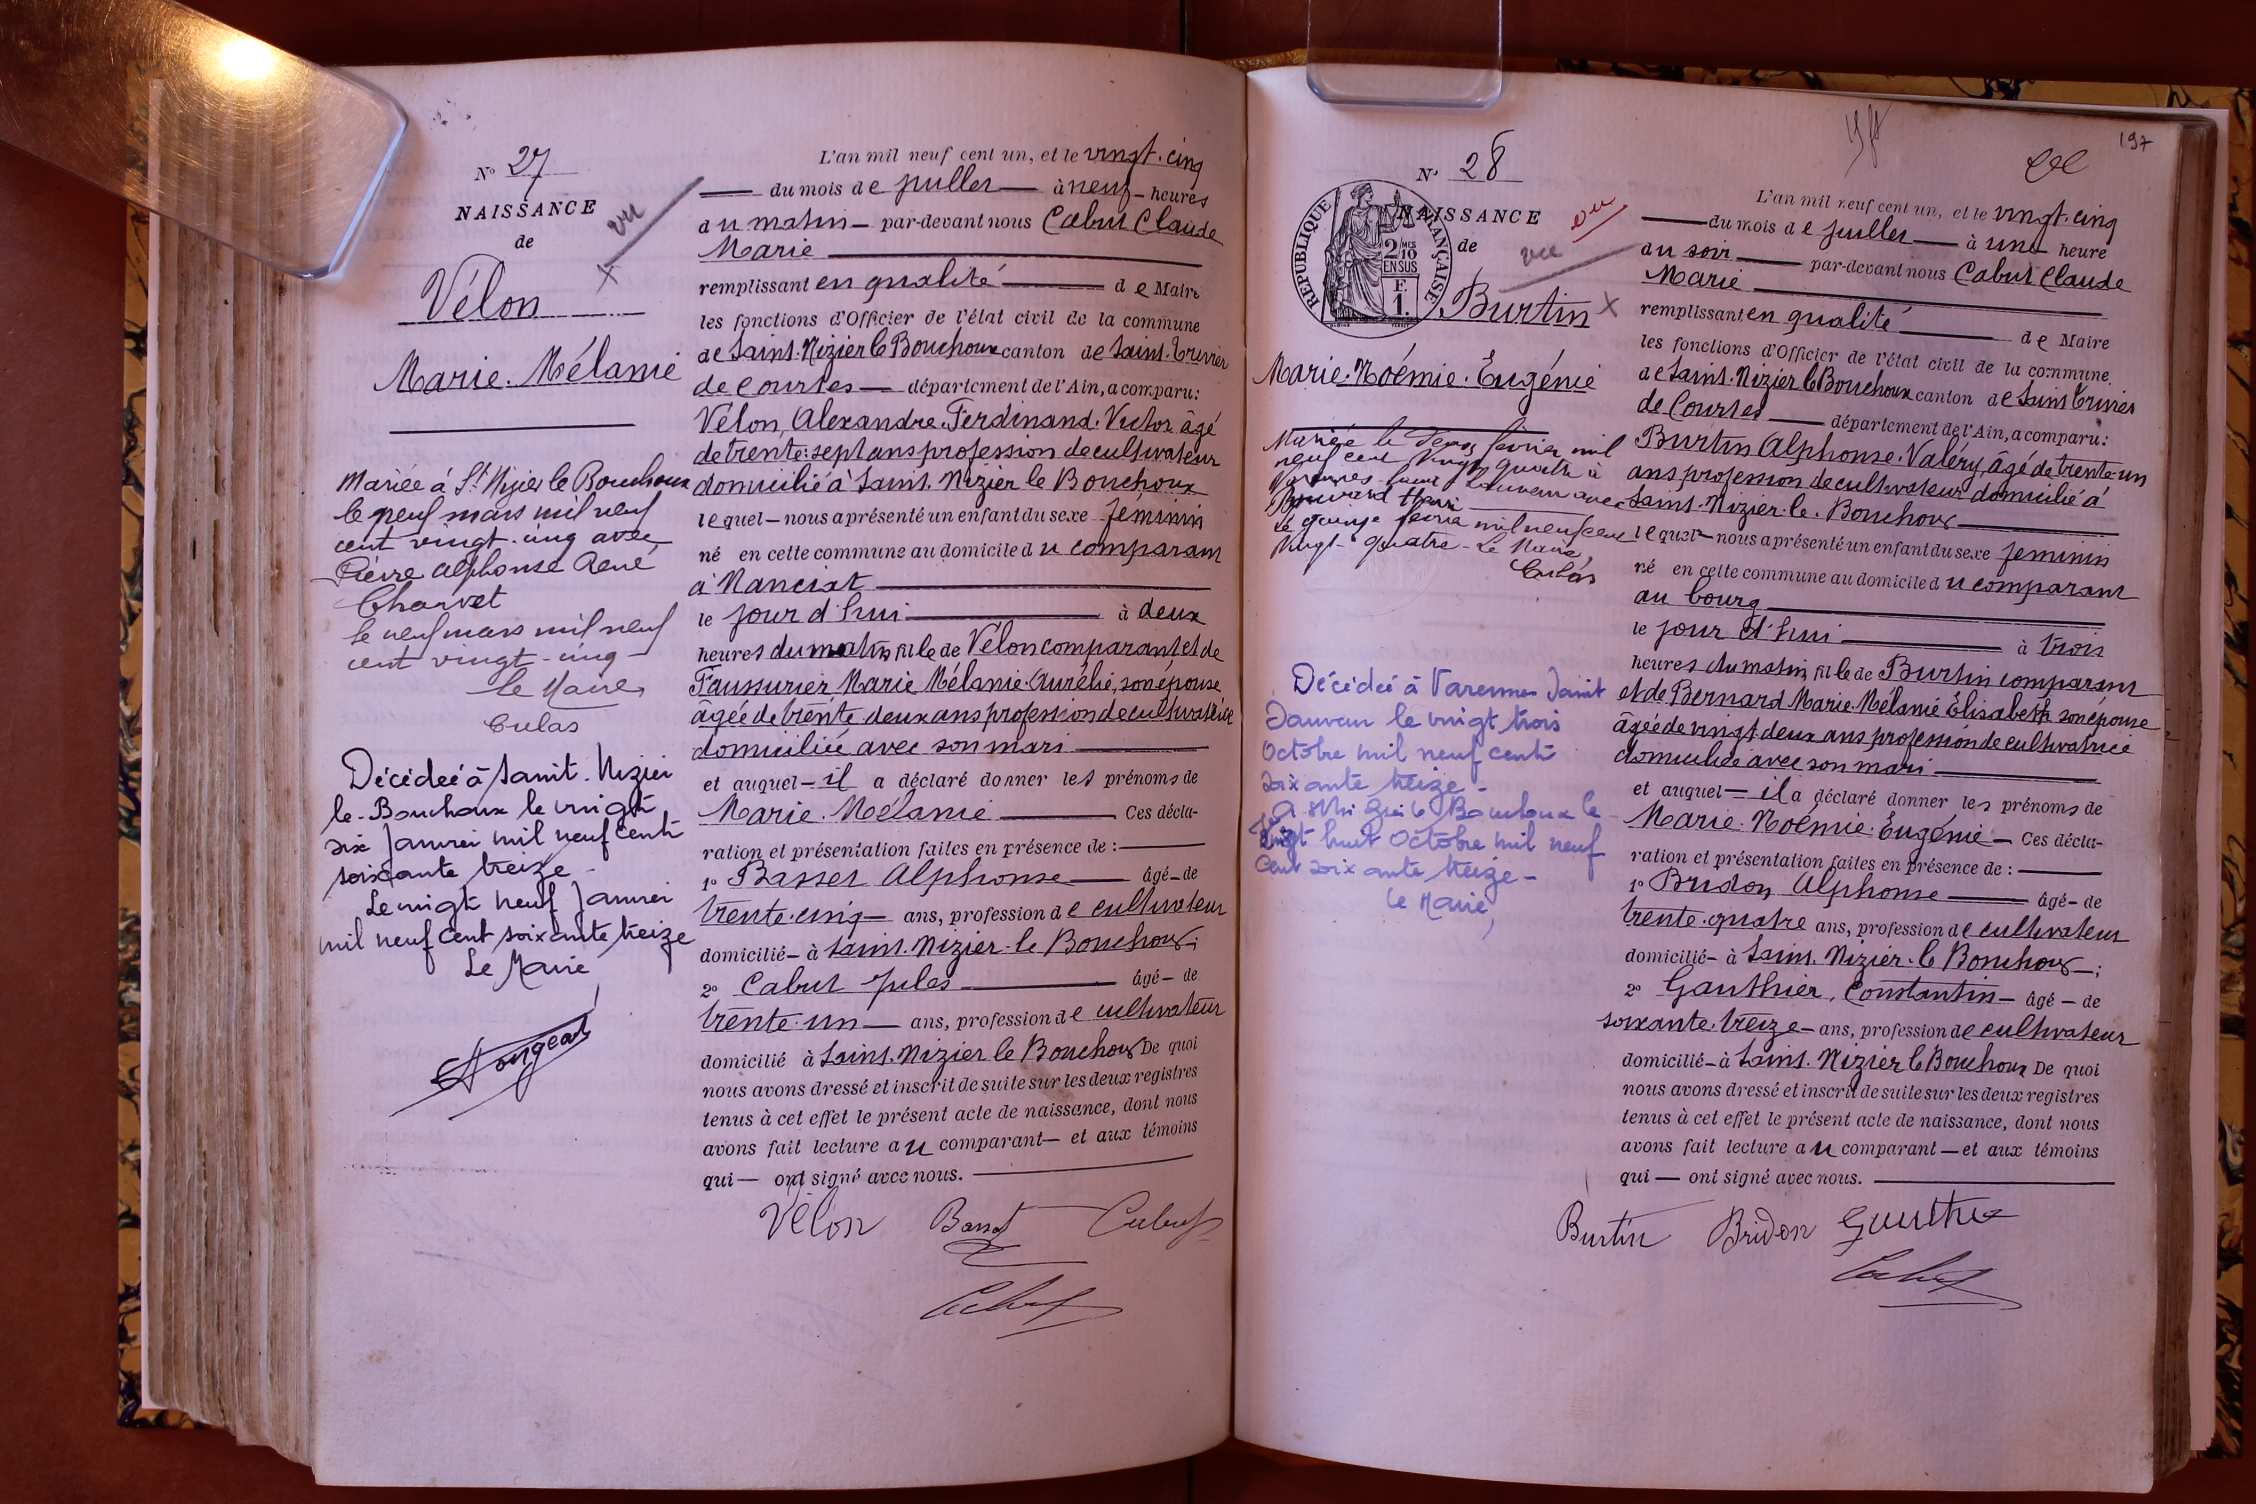 N° 27
NAISSANCE
de
Vélon
Marie. Mélanie
vu
Mariée à St Nizier le Bouchoux
le neuf mars mil neuf
cent vingt-cinq avec
Pierre Alphonse René
Charvet
le neuf mars mil neuf
cent vingt-cinq
Le Maire,
Culas
Décédée à Saint. Nizier
le-Bouchoux le vingt
six Janvier mil neuf cent
soixante treize -
Le vingt neuf Janvier
mil neuf cent soixante treize
Le Maire
L'an mil neuf cent un, et le vingt-cinq
du mois de juillet à neuf heures
du matin par-devant nous Cabut Claude
Marie
remplissant en qualité de Maire
les fonctions d'Officier de l'état civil de la commune
de Saint-Nizier le Bouchoux canton de Saint-Trivier
de Courtes département de l'Ain, a comparu:
Vélon, Alexandre. Ferdinand. Victor âgé
de trente-sept ans profession de cultivateur
domicilié à Saint. Nizier le Bouchoux
lequel nous a présenté un enfant du sexe féminin
né en cette commune au domicile du comparant
à Nanciat
le jour d'hui à deux
heures du matin fille de Vélon comparant et de
Faussurier Marie Mélanie Aurélie, son épouse
âgée de trente deux ans profession de cultivatrice
domiciliée avec son mari
et auquel il a déclaré donner les prénoms de
Marie. Mélanie Ces décla-
ration et présentation faites en présence de :
1° Basset Alphonse âgé de
trente-cinq ans, profession de cultivateur
domicilié à Saint. Nizier-le Bouchoux;
2° Cabut Jules âgé de
trente-un ans, profession de cultivateur
domicilié à Saint. Nizier le Bouchoux De quoi
nous avons dressé et inscrit de suite sur les deux registres
tenus à cet effet le présent acte de naissance, dont nous
avons fait lecture au comparant et aux témoins
qui ont signé avec nous.
Vélon Basset Cabut
Cabut
197
N° 28
RÉPUBLIQUE FRANÇAISE
2/10
EN SUS
F.
1.
NAISSANCE
de
vu
vu
Burtin
Marie. Noémie. Eugénie
Mariée le deux février mil
neuf cent vingt quatre à
Varennes Saint Sauveur avec
Bouvard Henri
Le quinze février mil neuf cent
vingt-quatre - Le Maire,
Culas
Décédée à Varennes Saint
Sauveur le vingt trois
Octobre mil neuf cent
soixante treize -
le
vingt huit Octobre mil neuf
cent soixante treize -
Le Maire,
L'an mil neuf cent un, et le vingt-cinq
du mois de juillet à une heure
du soir par-devant nous Cabut Claude
Marie
remplissant en qualité de Maire
les fonctions d'Officier de l'état civil de la commune
de Saint. Nizier le Bouchoux canton de Saint Trivier
de Courtes département de l'Ain, a comparu:
Burtin Alphonse. Valéry, âgé de trente-un
ans profession de cultivateur domicilié à
Saint. Nizier. le. Bouchoux
lequel nous a présenté un enfant du sexe féminin
né en cette commune au domicile du comparant
au bourg
le jour d'hui à trois
heures du matin fille de Burtin comparant
et de Bernard Marie. Mélanie Élisabeth son épouse
âgée de vingt-deux ans profession de cultivatrice
domiciliée avec son mari
et auquel il a déclaré donner les prénoms de
Marie. Noémie. Eugénie Ces décla-
ration et présentation faites en présence de :
1° Bridon Alphonse âgé de
trente-quatre ans, profession de cultivateur
domicilié à Saint. Nizier-le Bouchoux;
2° Gauthier, Constantin âgé de
soixante-treize ans, profession de cultivateur
domicilié à Saint. Nizier le Bouchoux De quoi
nous avons dressé et inscrit de suite sur les deux registres
tenus à cet effet le présent acte de naissance, dont nous
avons fait lecture au comparant et aux témoins
qui ont signé avec nous.
Burtin Bridon Gauthier
Cabut